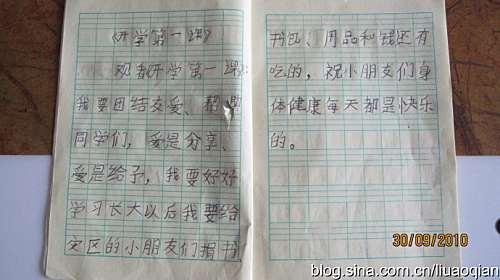 《开学第一课》
观看开学第一课:
我要团结友爱、帮助
同学们，爱是分享、
爱是给予，我要好好
学习长大以后我要给
灾区的小朋友们捐书
书包、用品和钱还有
吃的，祝小朋友们身
体健康每天都是快乐
的。
30/09/2010
blog.sina.com.cn/liuaoqian